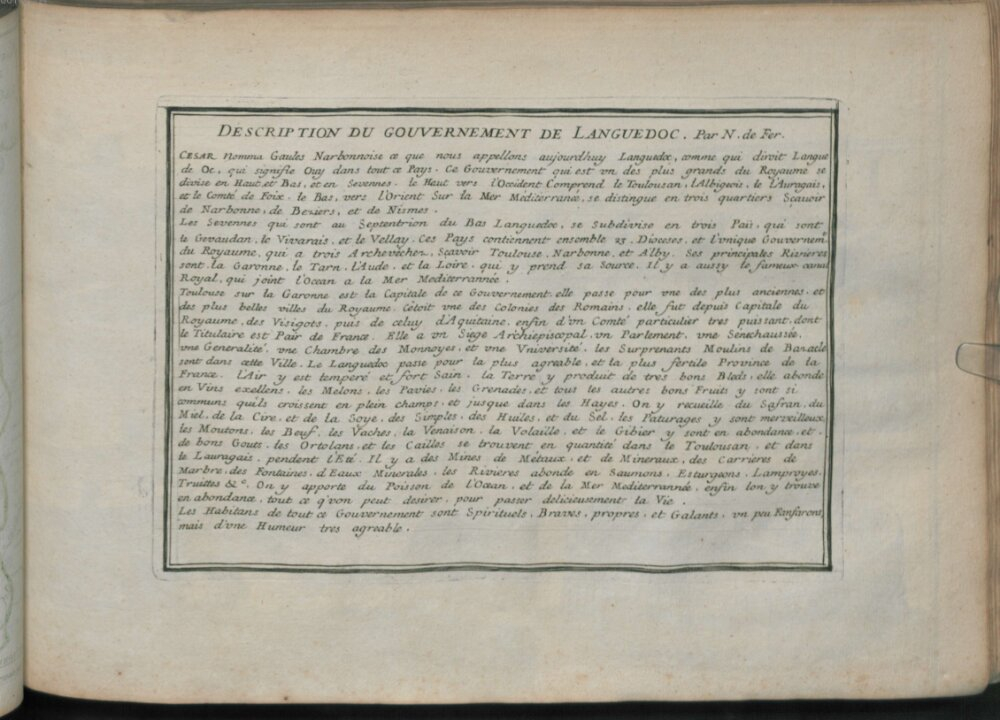 DESCRIPTION DU GOUVERNEMENT DE LANGUEDOC. Par N. de Fer.
CESAR nomma Gaules Narbonnoise ce que nous appellons aujourdhuy Languedoc, comme qui diroit Langue
de Oc, qui signifie Ouy dans tout ce Pays. Ce Gouvernement qui est vn des plus grands du Royaume se
divise en Haut et Bas, et en Sevennes. le Haut vers l'Occident Comprend le Toulousan, l'Albigeois, le l'Auragais,
et le Comté de Foix. le Bas, vers l'Orient Sur la Mer Mediterranée, se distingue en trois quartiers Sçavoir
de Narbonne, de Beziers, et de Nismes.
Les Sevennes qui sont au Septentrion du Bas Languedoc, se Subdivise en trois Païs, qui sont
le Gevaudan, le Vivarais, et le Vellay. Ces Pays contiennent ensemble 23. Dioceses, et l'vnique Gouvernem.t
du Royaume, qui a trois Archevéchez, Sçavoir Toulouse, Narbonne, et Alby. Ses principales Rivieres
sont la Garonne, le Tarn, l'Aude, et la Loire, qui y prend sa Source. Il y a aussy le fameux canal
Royal, qui joint l'Ocean a la Mer Mediterrannée.
Toulouse sur la Garonne est la Capitale de ce Gouvernement, elle passe pour vne des plus anciennes, et
des plus belles villes du Royaume. C'étoit vne des Colonies des Romains, elle fut depuis Capitale du
Royaume, des Visigots, puis de celuy d'Aquitaine, enfin d'vn Comté particulier tres puissant, dont
le Titulaire est Pair de France. Elle a vn Siege Archiepiscopal, vn Parlement, vne Senechaussée,
vne Generalité, vne Chambre des Monnoyes, et vne Vniversité, les Surprenants Moulins de Bazacle
sont dans cette Ville. Le Languedoc passe pour la plus agreable, et la plus fertile Province de la
France. L'Air y est temperé et fort Sain, la Terre y produit de tres bons Bleds, elle abonde
en Vins exellens, les Melons, les Pavies, les Grenades, et tous les autres bons Fruits y sont si
communs qu'ils croissent en plein champs, et jusque dans les Hayes. On y recueille du Safran, du
Miel, de la Cire, et de la Soye, des Simples, des Huiles, et du Sel, les Paturages y sont merveilleux,
les Moutons, les Beuf, les Vaches, la Venaison, la Volaille, et le Gibier y sont en abondance, et
de bons Gouts, les Ortolans, et les Cailles se trouvent en quantité dans le Toulousan, et dans
le Lauragais, pendent l'Eté. Il y a des Mines de Métaux, et de Mineraux, des Carrieres de
Marbre, des Fontaines, d'Eaux Minerales, les Rivieres abonde en Saumons, Esturgeons, Lamproyes,
Truittes &c. On y apporte du Poisson de l'Ocean, et de la Mer Mediterranneé, enfin lon y trouve
en abondance, tout ce q'von peut desirer, pour passer delicieusement la Vie.
Les Habitans de tout ce Gouvernement sont Spirituels, Braves, propres, et Galants, vn peu Fanfarons,
mais d'vne Humeur tres agreable.